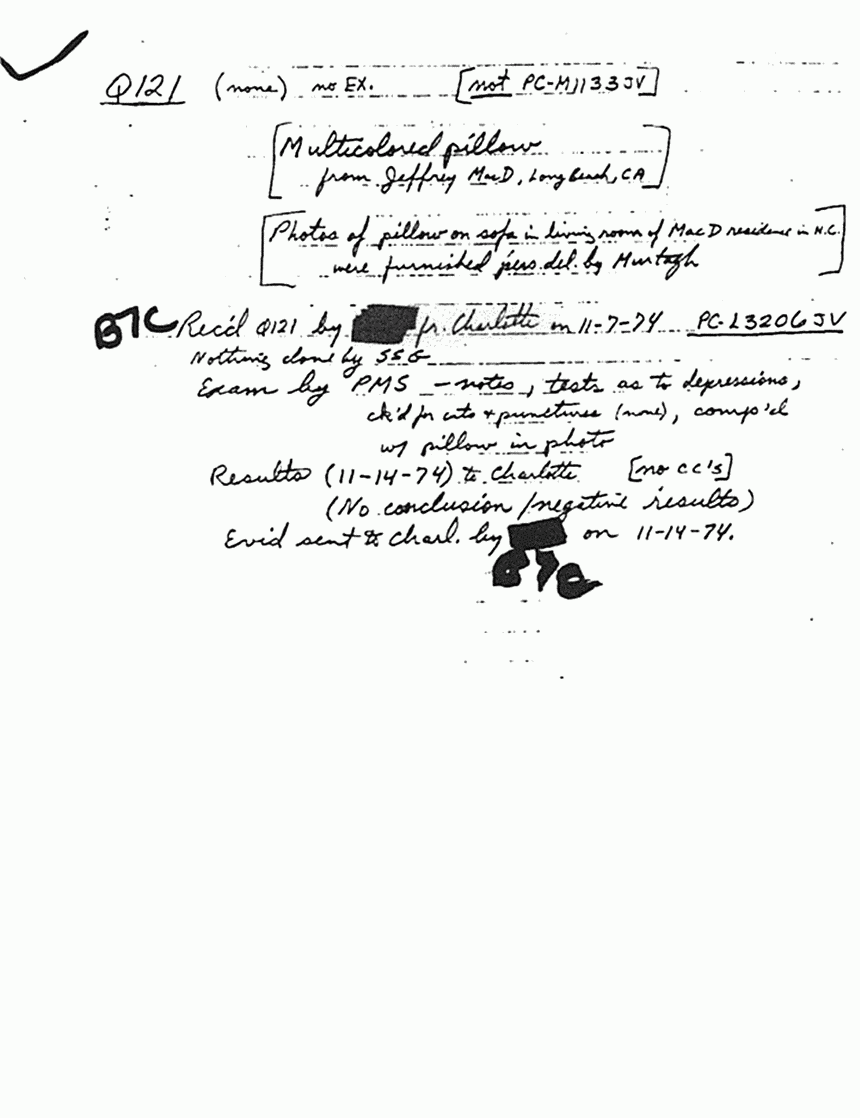 Q121 (none) no EX. [not PC-M1133JV]
[Multicolored pillow
from Jeffrey MacD, Long Beach, CA]
[Photos of pillow on sofa in living room of MacD residence in N.C.
were furnished pers. del. by Murtagh]
B7C Rec'd Q121 by fr. Charlotte on 11-7-74 PC-L3206JV
Nothing done by SSG
Exam by PMS - notes, tests as to depressions,
ck'd for cuts + punctures (none), comp'd
w/ pillow in photo
Results (11-14-74) to Charlotte [no cc's]
(No conclusion/negative results)
Evid sent to Charl. by on 11-14-74.
B7C